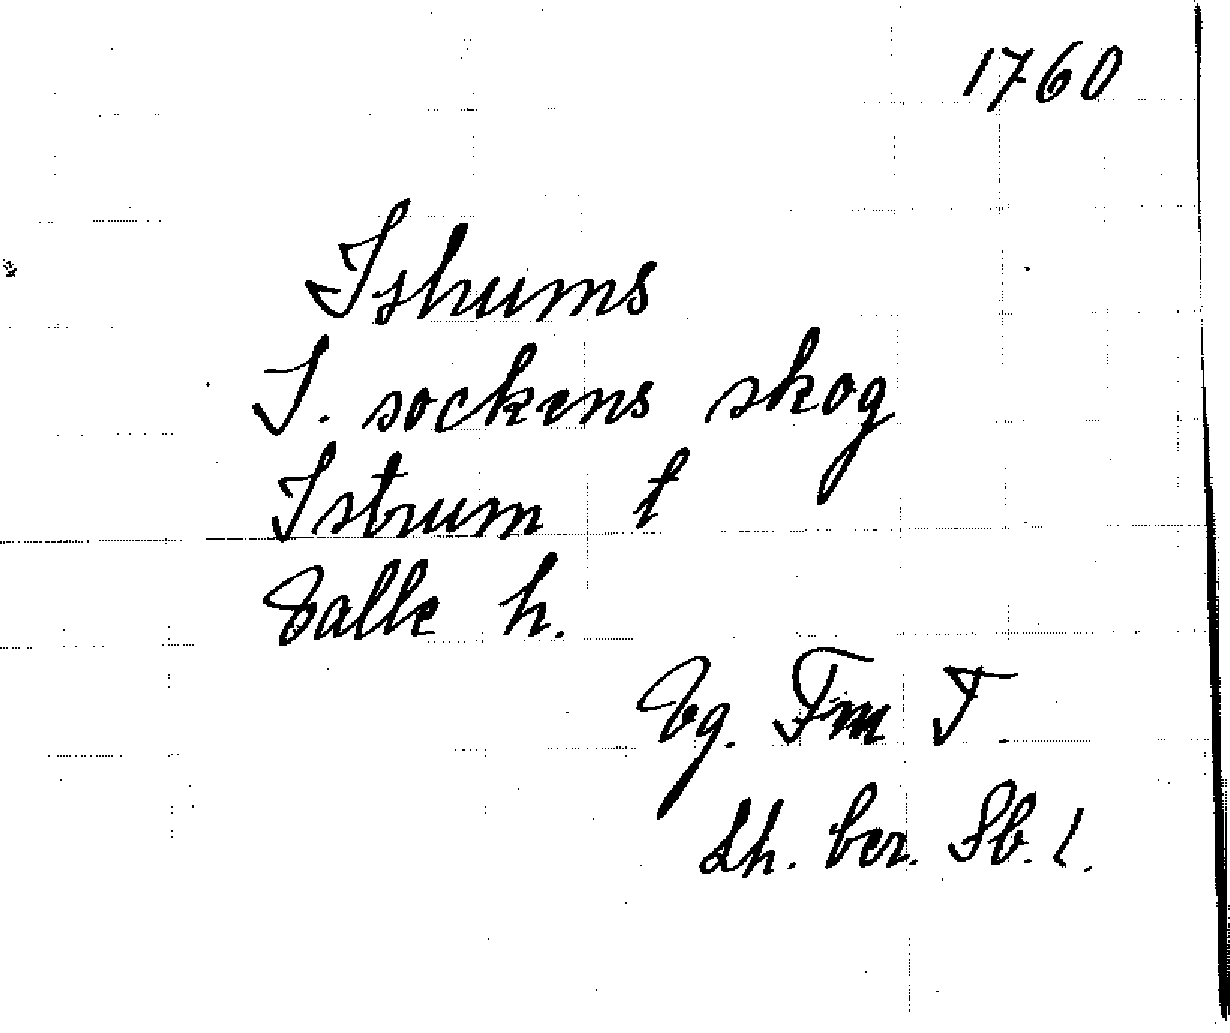 1760
Ishums
I. sockens skog
Istrum t
Valle h.
Vg. Fm T
Lh. ber. Sb. 1.